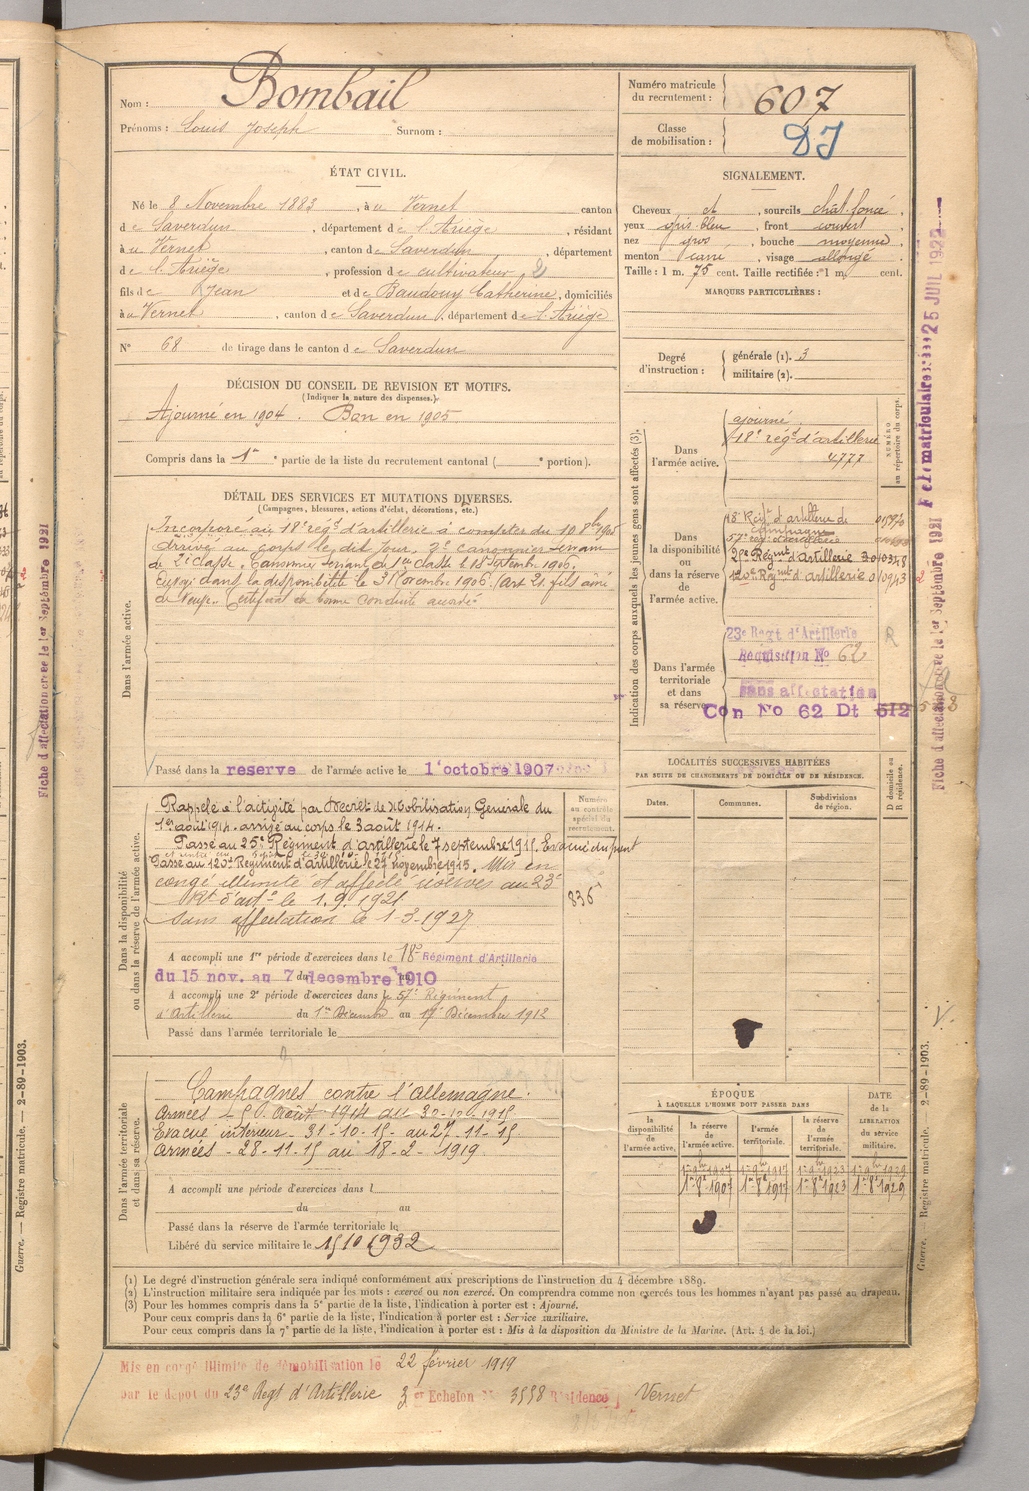 Nom : Bombail
Prénoms : Louis Joseph Surnom :
Numéro matricule
du recrutement : 607
Classe
de mobilisation : DJ
ÉTAT CIVIL.
Né le 8 Novembre 1883, à u Vernet canton
de Saverdun, département de l'Ariège, résidant
à u Vernet, canton de Saverdun, département
de l'Ariège, profession de cultivateur 2
fils de Jean et de Baudouy Catherine, domiciliés
à u Vernet, canton de Saverdun, département de l'Ariège
N° 68 de tirage dans le canton de Saverdun
SIGNALEMENT.
Cheveux et, sourcils chât. foncé,
yeux gris-bleu, front couvert,
nez gros, bouche moyenne,
menton carré, visage allongé
Taille : 1 m. 75 cent. Taille rectifiée : 1 m. cent.
MARQUES PARTICULIÈRES :
Degré
d'instruction :
générale (1). 3
militaire (2).
DÉCISION DU CONSEIL DE REVISION ET MOTIFS.
(Indiquer la nature des dispenses.)
Ajourné en 1904. Bon en 1905
Compris dans la 1re partie de la liste du recrutement cantonal ( e portion).
DÉTAIL DES SERVICES ET MUTATIONS DIVERSES.
(Campagnes, blessures, actions d'éclat, décorations, etc.)
Dans l'armée active.
Incorporé au 18e régt d'artillerie à compter du 10 8bre 1905
arrivé au corps le dit jour, 2e canonnier servant
de 2e classe. Canonnier servant de 1re classe le 18 septembre 1906.
Envoyé dans la disponibilité le 3 Novembre 1906. (Art 21. fils aîné
de veuve. Certificat de bonne conduite accordé
Passé dans la reserve de l'armée active le 1er octobre 1907
Indication des corps auxquels les jeunes gens sont affectés (3).
NUMÉRO
au répertoire du corps.
Dans
l'armée active.
ajourné
18e régt d'artillerie
4777
Dans
la disponibilité
ou
dans la réserve
de
l'armée active.
18e Régt d'artillerie de
campagne
57e rég. d'artillerie
2 Régmt d'Artillerie
Régmt d'artillerie
Dans l'armée
territoriale
et dans
sa réserve.
23e Regt d'Artillerie R
Requisition No 62
sans affectation
Con No 62 Dt 512
Dans la disponibilité
ou dans la réserve de l'armée active.
Numéro
au contrôle
spécial du
recrutement.
Rappelé à l'activité par Décret de Mobilisation Générale du
1er août 1914. arrivé au corps le 3 août 1914.
Passé au 25e Régiment d'artillerie le 7 septembre 1915. Evacué du front
Passé au 123e Régiment d'artillerie le 27 novembre 1915. Mis en
congé illimité et affecté réserves au 23e
Rt d'art. le 1.9.1921
836
Sans affectation le 1-3-1927
A accompli une 1re période d'exercices dans le 18e Régiment d'Artillerie
du 15 nov. au 7 decembre 1910
A accompli une 2e période d'exercices dans le 57e Régiment
d'Artillerie du 1er Décembre au 17 Décembre 1912
Passé dans l'armée territoriale le
LOCALITÉS SUCCESSIVES HABITÉES
PAR SUITE DE CHANGEMENTS DE DOMICILE OU DE RÉSIDENCE.
Dates. Communes. Subdivisions
de région.
D domicile ou
R résidence.
Dans l'armée territoriale
et dans sa réserve.
Campagnes contre l'allemagne.
Armées - 5 Août 1914 au 30-10-1915
Evacué intérieur - 31-10-15 - au 27-11-15
Armées - 28-11-15 au 18-2-1919.
A accompli une période d'exercices dans l
du au
Passé dans la réserve de l'armée territoriale le
Libéré du service militaire le 15 10 1932
ÉPOQUE
À LAQUELLE L'HOMME DOIT PASSER DANS
la
disponibilité
de
l'armée active.
la réserve
de
l'armée active.
l'armée
territoriale.
la réserve
de
l'armée
territoriale.
DATE
de la
LIBÉRATION
du service
militaire.
1er 8bre 1907 1er 8bre 1917 1er 8bre 1923 1er 8bre 1929
(1) Le degré d'instruction générale sera indiqué conformément aux prescriptions de l'instruction du 4 décembre 1889.
(2) L'instruction militaire sera indiquée par les mots : exercé ou non exercé. On comprendra comme non exercés tous les hommes n'ayant pas passé au drapeau.
(3) Pour les hommes compris dans la 5e partie de la liste, l'indication à porter est : Ajourné.
Pour ceux compris dans la 6e partie de la liste, l'indication à porter est : Service auxiliaire.
Pour ceux compris dans la 7e partie de la liste, l'indication à porter est : Mis à la disposition du Ministre de la Marine. (Art. 4 de la loi.)
Mis en congé illimité de démobilisation le 22 février 1919
par le dépot du 23e Regt d'Artillerie 3 er Echelon No 3558 Résidence Vernet
Guerre. — Registre matricule. — 2-89-1903.
Guerre. — Registre matricule. — 2-89-1903.
Fiche d'affectation créée le 1er Septembre 1921
Fiche d'affectation créée le 1er Septembre 1921
25 JUIL 1922